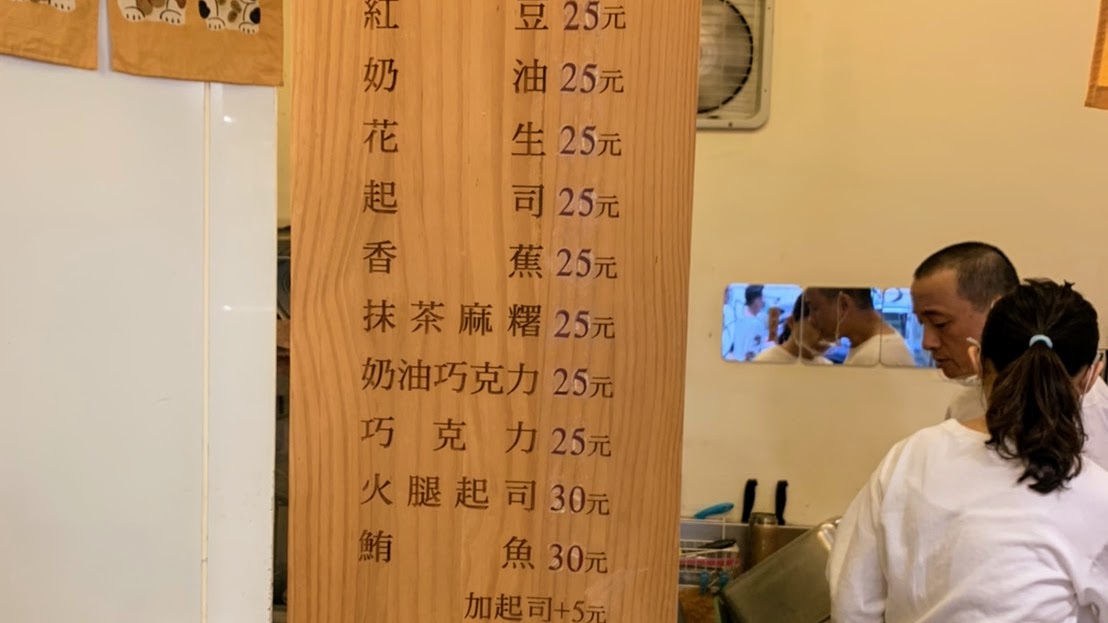 紅豆 25元
奶油 25元
花生 25元
起司 25元
香蕉 25元
抹茶麻糬 25元
奶油巧克力 25元
巧克力 25元
火腿起司 30元
鮪魚 30元
加起司+5元